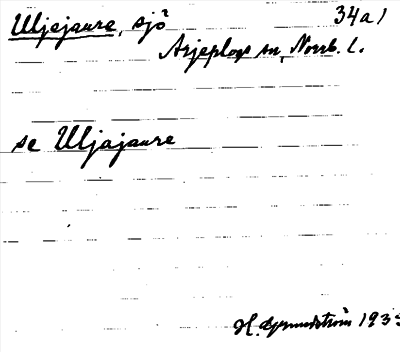 Uljejaure, sjö 34a1
Arjeplogs sn, Norrb. l.
se Uljajaure
H. Grundström 193